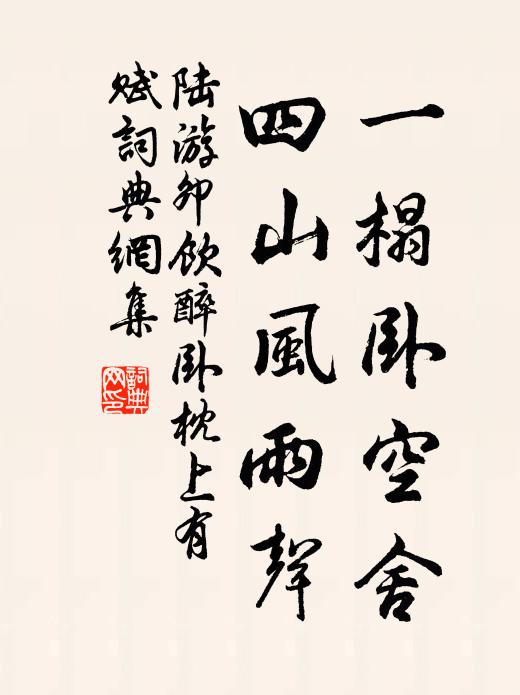 一榻卧空舍
四山風雨聲
陆游卯飲醉卧枕上有
赋詞典網集
詞典网印